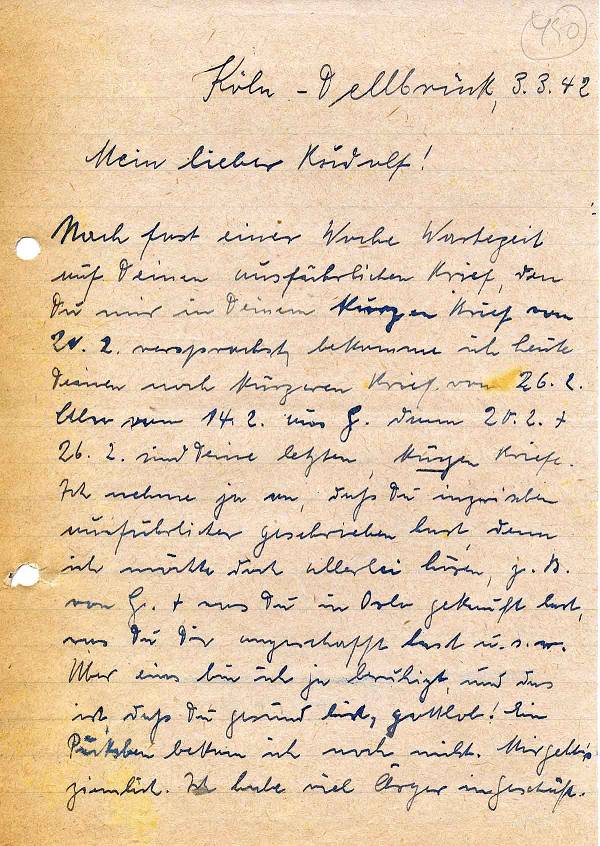 450
Köln - Dellbrück, 3.3.42
Mein lieber Rudolf!
Nach fast einer Woche Wartezeit
auf Deinen ausführlichen Brief, den
Du mir in Deinem kurzen Brief vom
20. 2. versprachst, bekomme ich heute
Deinen noch kürzeren Brief vom 26. 2.
Also vom 14.2. aus G. dann 20.2. +
26. 2. sind Deine letzten, kurzen Briefe.
Ich nehme ja an, daß Du inzwischen
ausführlicher geschrieben hast, denn
ich möchte doch allerlei hören, z. B.
von G. + was Du in Oslo gekauft hast,
was Du Dir angeschafft hast u.s.w.
Aber eins bin ich ja beruhigt, und das
ist, daß Du gesund bist, gottlob! Ein
Päckchen bekam ich noch nicht. Mir geht's
ziemlich. Ich habe viel Ärger im Geschäft.